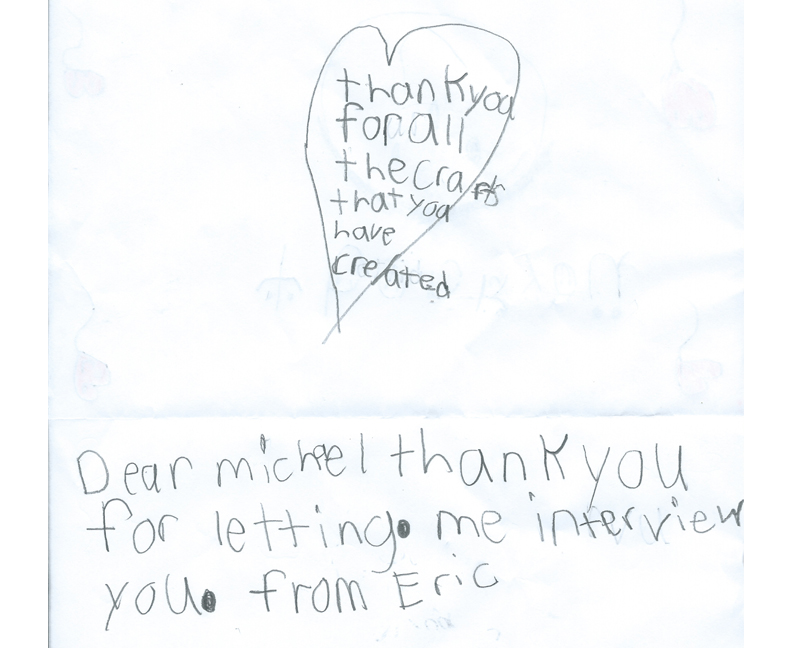 thank you
for all
the crafts
that you
have
created
Dear micheel thank you
for letting. me interview
you. from Eric